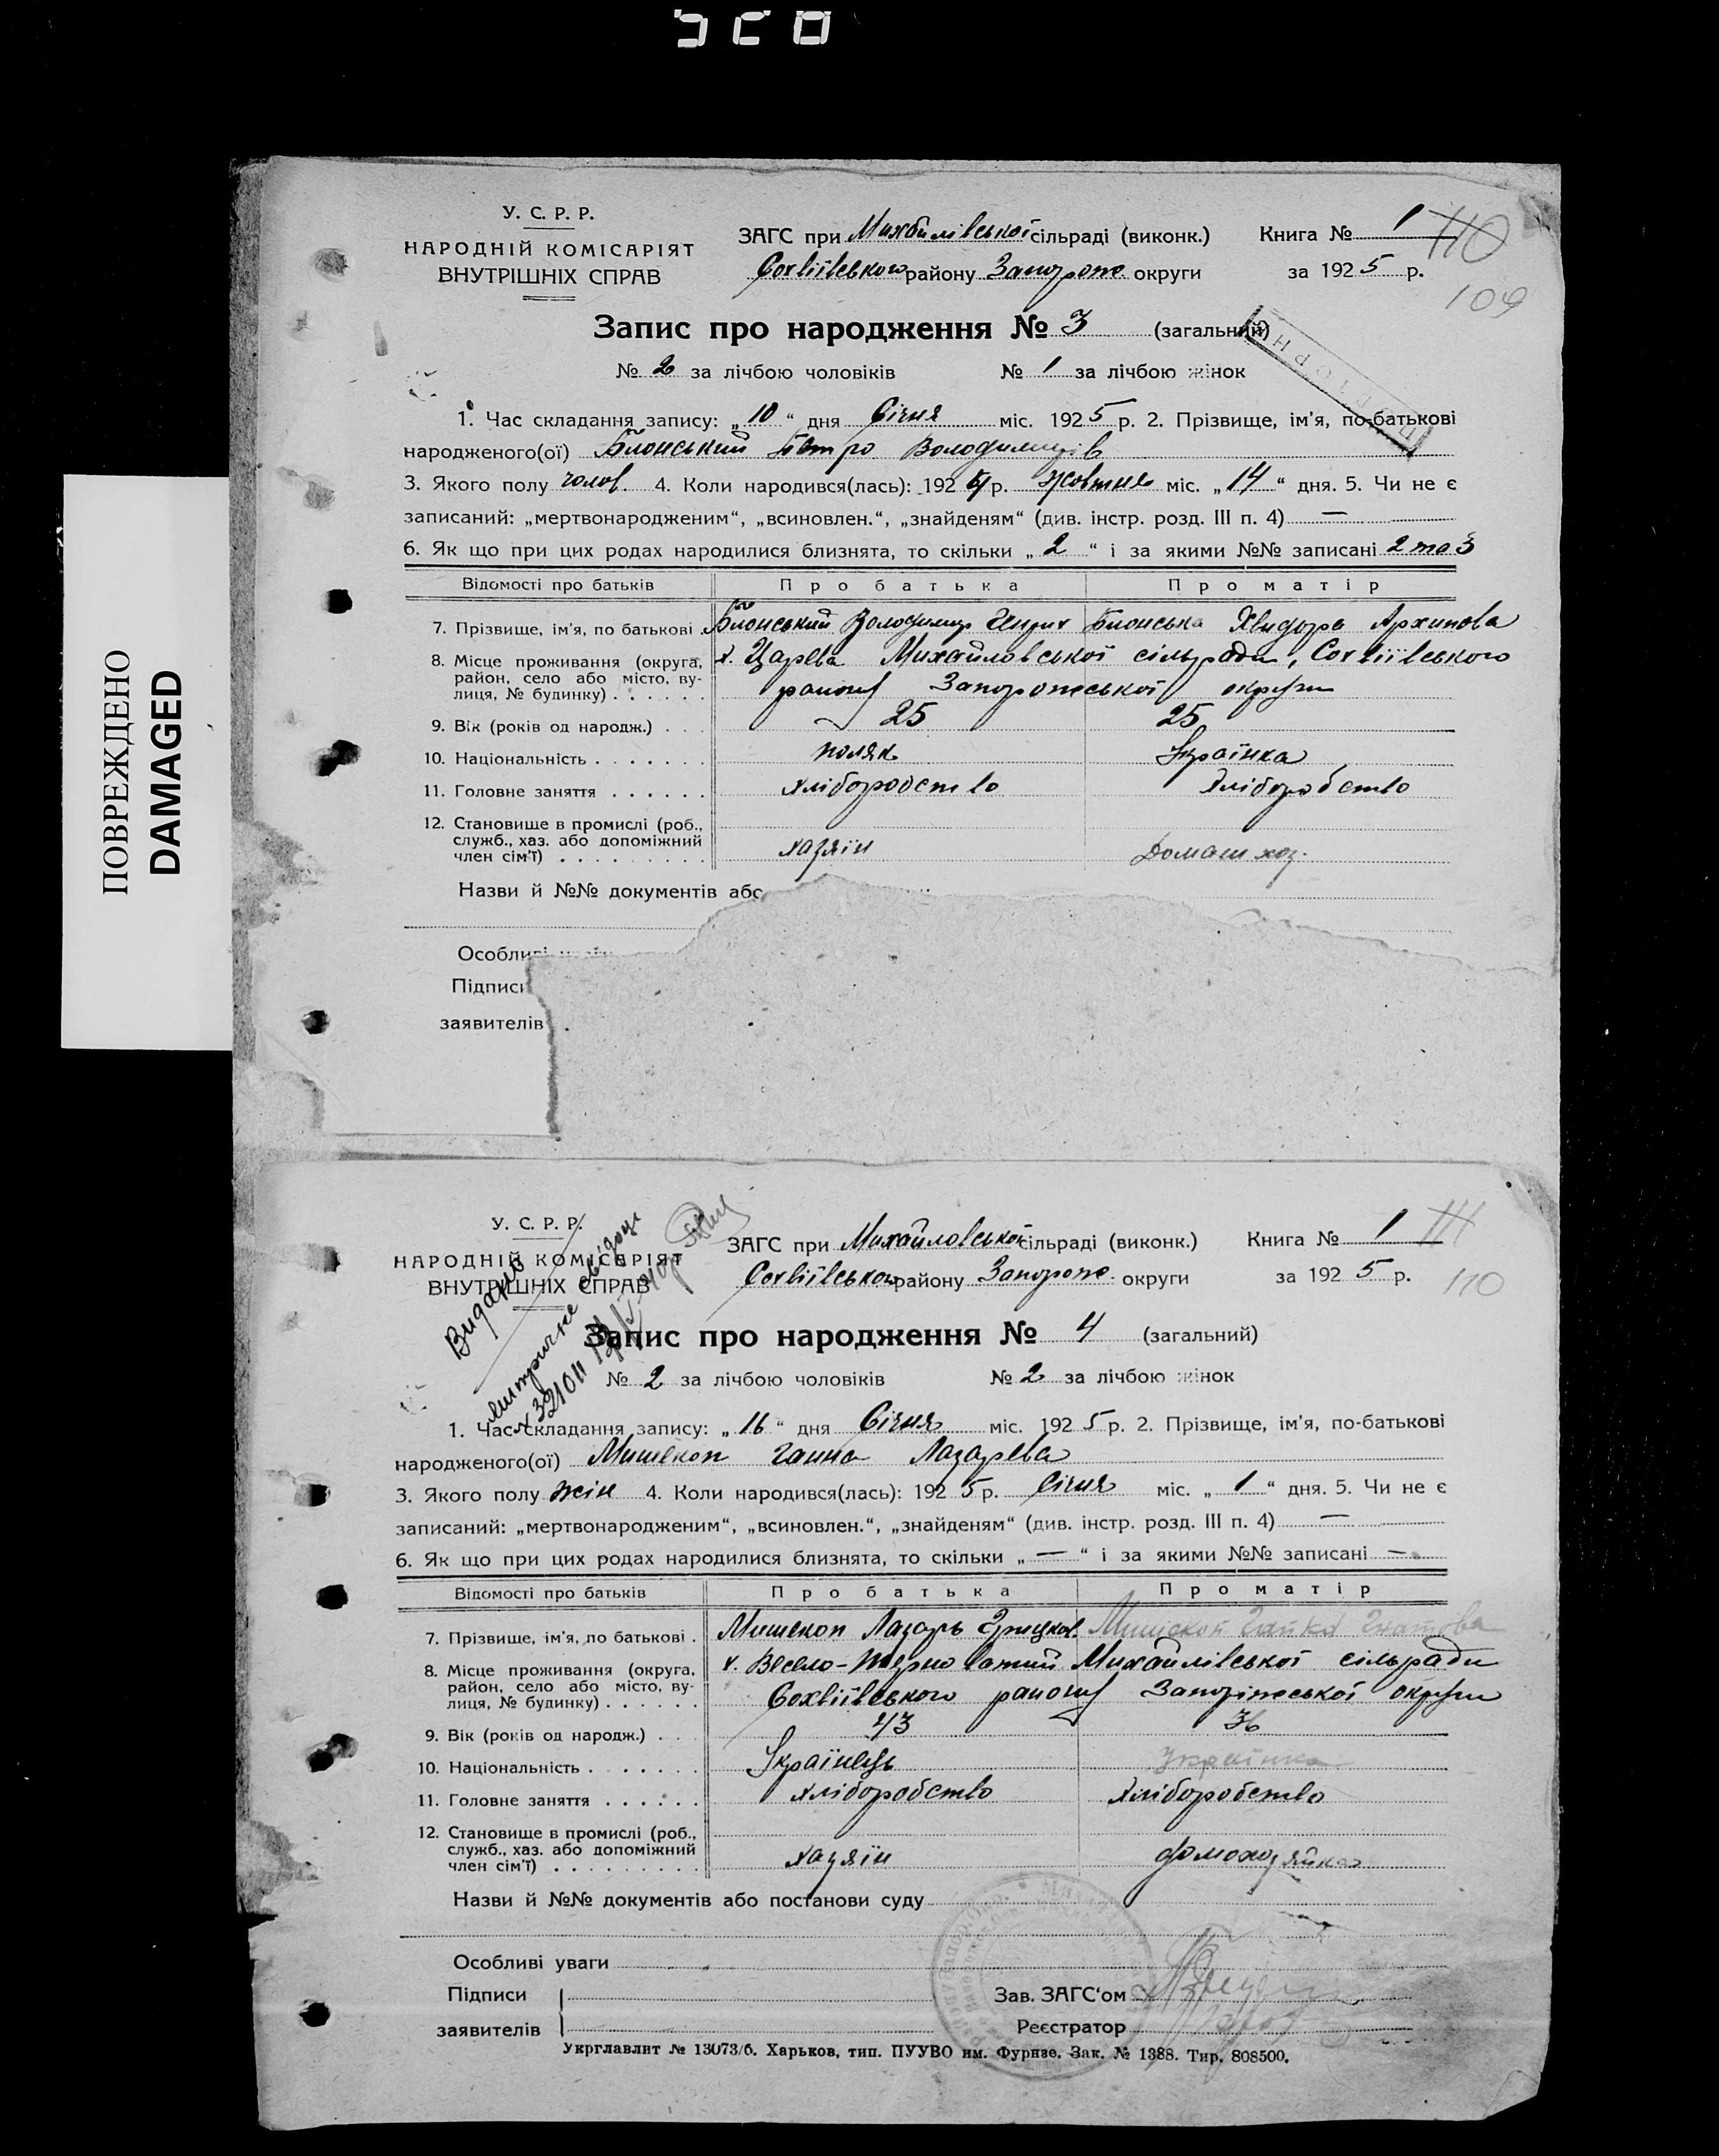 ПОВРЕЖДЕНО
DAMAGED
У. С. Р. Р.
НАРОДНІЙ КОМІСАРІЯТ
ВНУТРІШНІХ СПРАВ
ЗАГС при Михайлівської сільраді (виконк.) Книга № 1
Софіївського району Запорож. округи за 1925 р.
110
109
Запис про народження № 3 (загальний)
№ 2 за лічбою чоловіків № 1 за лічбою жінок
1. Час складання запису: „10“ дня Січня міс. 1925 р. 2. Прізвище, ім'я, по-батькові
народженого(ої) Блонський Петро Володимирів
3. Якого полу чолов. 4. Коли народився(лась): 1924 р. Жовтня міс. „14“ дня. 5. Чи не є
записаний: „мертвонародженим“, „всиновлен.“, „знайденям“ (див. інстр. розд. III п. 4) —
6. Як що при цих родах народилися близнята, то скільки „2“ і за якими №№ записані 2 та 3
Відомості про батьків Про батька Про матір
7. Прізвище, ім'я, по батькові . Блонський Володимир Блонська Хвидора Архипова
8. Місце проживання (округа, х. Царева Михайловської сільради, Софіївського
район, село або місто, ву-
лиця, № будинку) . . . . . району Запорожської округи
9. Вік (років од народж.) . . . 25 25
10. Національність . . . . . . . поляк Українка
11. Головне заняття . . . . . . хліборобство хліборобство
12. Становище в промислі (роб.,
служб., хаз. або допоміжний
член сім'ї) . . . . . . . . . хазяїн Домаш хоз.
Назви й №№ документів або
Особливі
Підписи
заявителів
У. С. Р. Р.
НАРОДНІЙ КОМІСАРІЯТ
ВНУТРІШНІХ СПРАВ
Видано
ЗАГС при Михайловської сільраді (виконк.) Книга № 1
Софіївського району Запорож. округи за 1925 р.
111
110
Запис про народження № 4 (загальний)
№ 2 за лічбою чоловіків № 2 за лічбою жінок
1. Час складання запису: „16“ дня Січня міс. 1925 р. 2. Прізвище, ім'я, по-батькові
народженого(ої) Мишекоп Ганна Лазарева
3. Якого полу жін 4. Коли народився(лась): 1925 р. Січня міс. „1“ дня. 5. Чи не є
записаний: „мертвонародженим“, „всиновлен.“, „знайденям“ (див. інстр. розд. III п. 4) —
6. Як що при цих родах народилися близнята, то скільки „—“ і за якими №№ записані —
Відомості про батьків Про батька Про матір
7. Прізвище, ім'я, по батькові . Мишекоп Лазарь Грицков. Мишекоп Гнатова
8. Місце проживання (округа, х. Весело- Михайлівської сільради
район, село або місто, ву-
лиця, № будинку) . . . . . . Софіївського району Запоріжської округи
9. Вік (років од народж.) . . . 43 36
10. Національність . . . . . . . Українець Українка
11. Головне заняття . . . . . . хліборобство хліборобство
12. Становище в промислі (роб.,
служб., хаз. або допоміжний
член сім'ї) . . . . . . . . . хазяїн домохозяйка
Назви й №№ документів або постанови суду
Особливі уваги
Підписи Зав. ЗАГС'ом
заявителів Реєстратор
Укрглавлит № 13073/б. Харьков, тип. ПУУВО им. Фрунзе. Зак. № 1388. Тир. 808500.